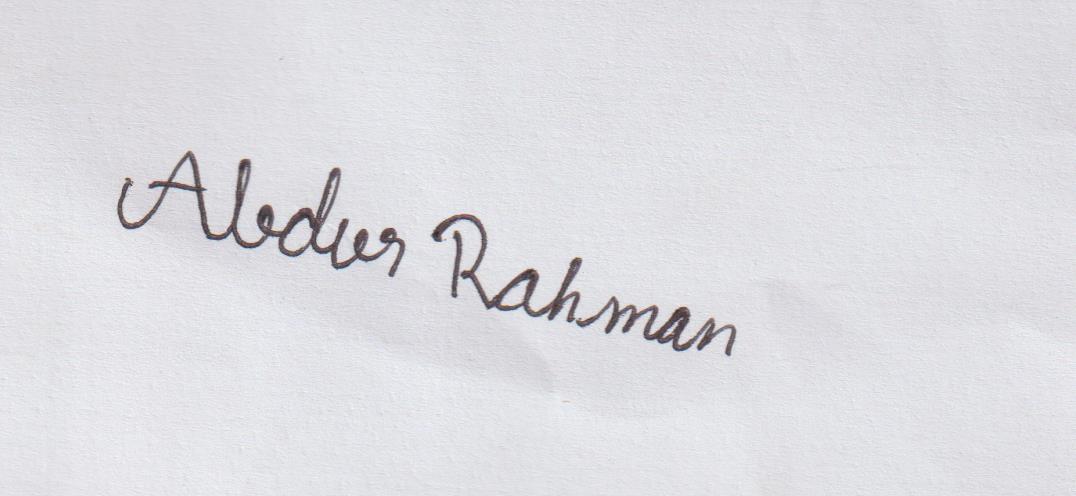 Abdur Rahman